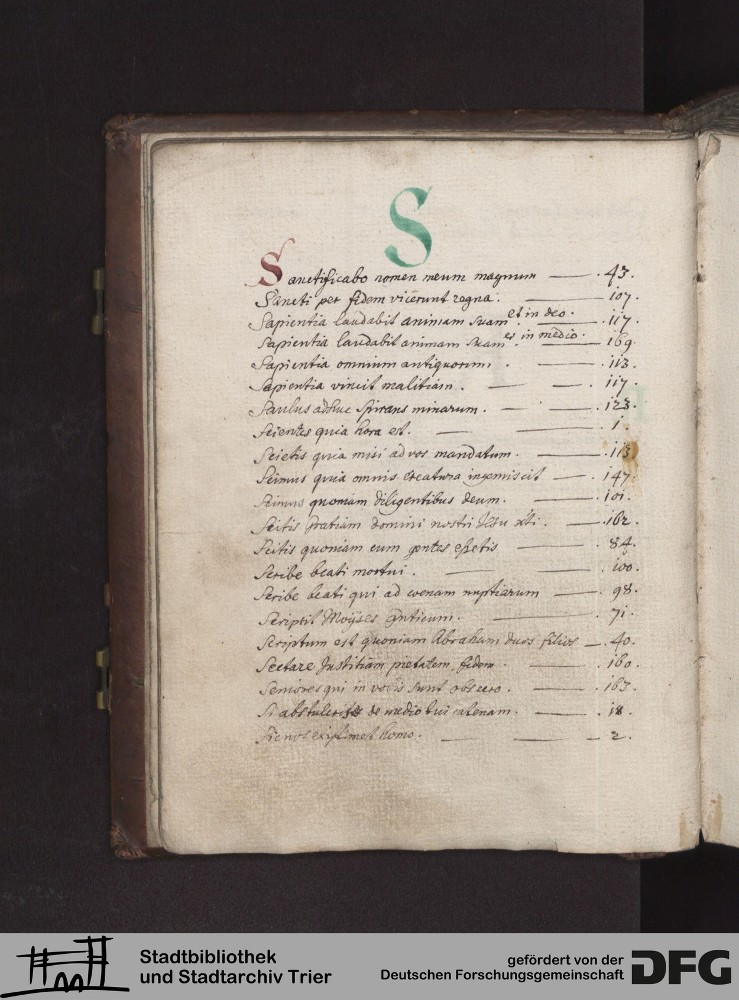 S
Sanctificabo nomen meum magnum — . 43.
Sancti per fidem vicerunt regna. — 107.
Sapientia laudabit animam suam et in deo. — . 117.
Sapientia laudabit animam suam et in medio. — 169
Sapientia omnium antiquorum . — . 113.
Sapientia vincit malitiam. — — . 117.
Paulus adhuc spirans minarum. — — . 123.
Scientes quia hora est. — — . 1.
Scietis quia misi ad vos mandatum. — . 113
Scimus quia omnis creatura ingemiscit — . 147.
Scimus quoniam diligentibus deum. — . 101.
Scitis gratiam domini nostri Jesu xti. — . 162.
Scitis quoniam cum gentes essetis — . 84.
Scribe beati mortui. — — . 100.
Scribe beati qui ad coenam nuptiarum — . 98.
Scripsit Moÿses Canticum. — 71.
Scriptum est quoniam Abraham duos filios — . 40.
Sectare Justitiam pietatem, fidem. — . 160.
Seniores qui in vobis sunt obsecro. — . 163.
Si abstuleris de medio tui catenam. — . 18.
Sic nos existimet homo. — — — 2.
Stadtbibliothek
und Stadtarchiv Trier
gefördert von der
Deutschen Forschungsgemeinschaft
DFG